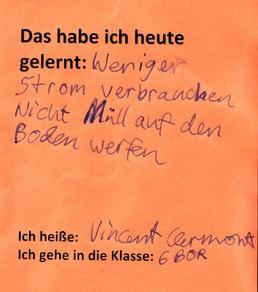 Das habe ich heute
gelernt: Weniger
Strom verbrauchen
Nicht Müll auf den
Boden werfen
Ich heiße: Vincent Clermont
Ich gehe in die Klasse: 6 BOR